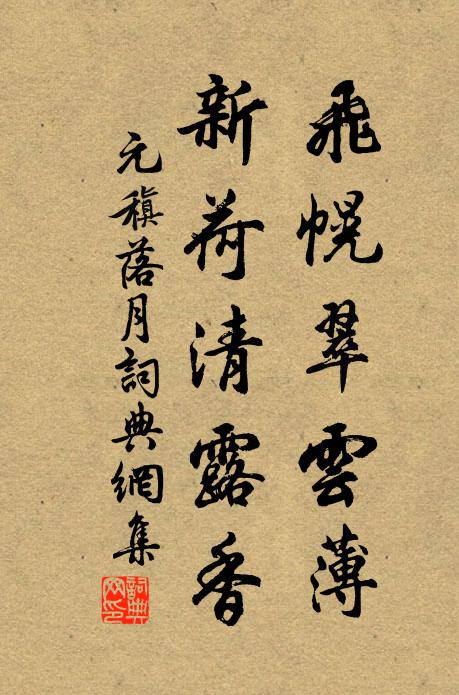 飛幌翠雲薄
新荷清露香
元稹落月詞典網集
詞典
网印